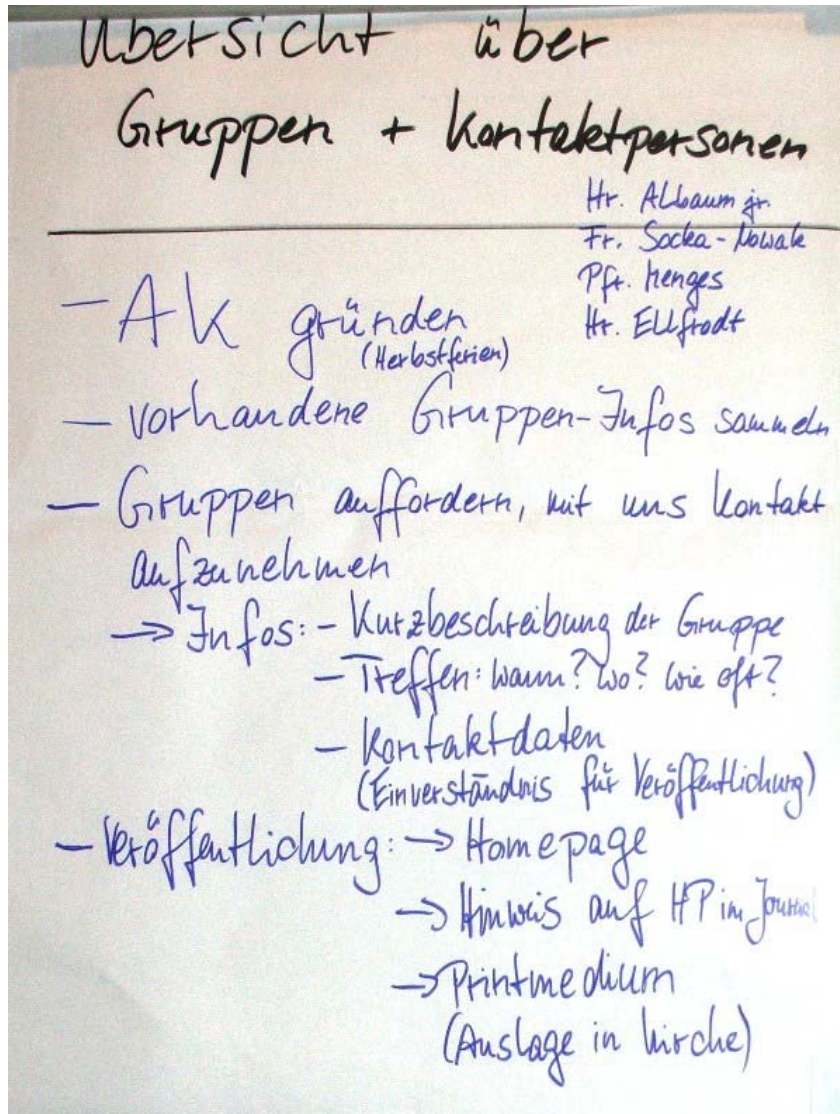 Übersicht über
Gruppen + Kontaktpersonen
Hr. Albaum jr.
Fr. Socka-Nowak
Pfr. Menges
Hr. Ellfrodt
- AK gründen
(Herbstferien)
- vorhandene Gruppen-Infos sammeln
- Gruppen auffordern, mit uns Kontakt
aufzunehmen
→ Infos: - Kurzbeschreibung der Gruppe
- Treffen: wann? wo? wie oft?
- Kontaktdaten
(Einverständnis für Veröffentlichung)
- Veröffentlichung: → Homepage
→ Hinweis auf HP im Journal
→ Printmedium
(Auslage in Kirche)